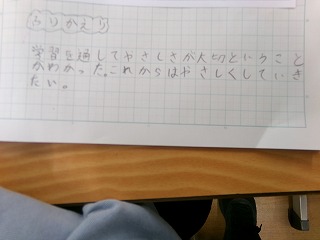 ふりかえり
学習を通してやさしさが大切ということ
がわかった。これからはやさしくしていき
たい。